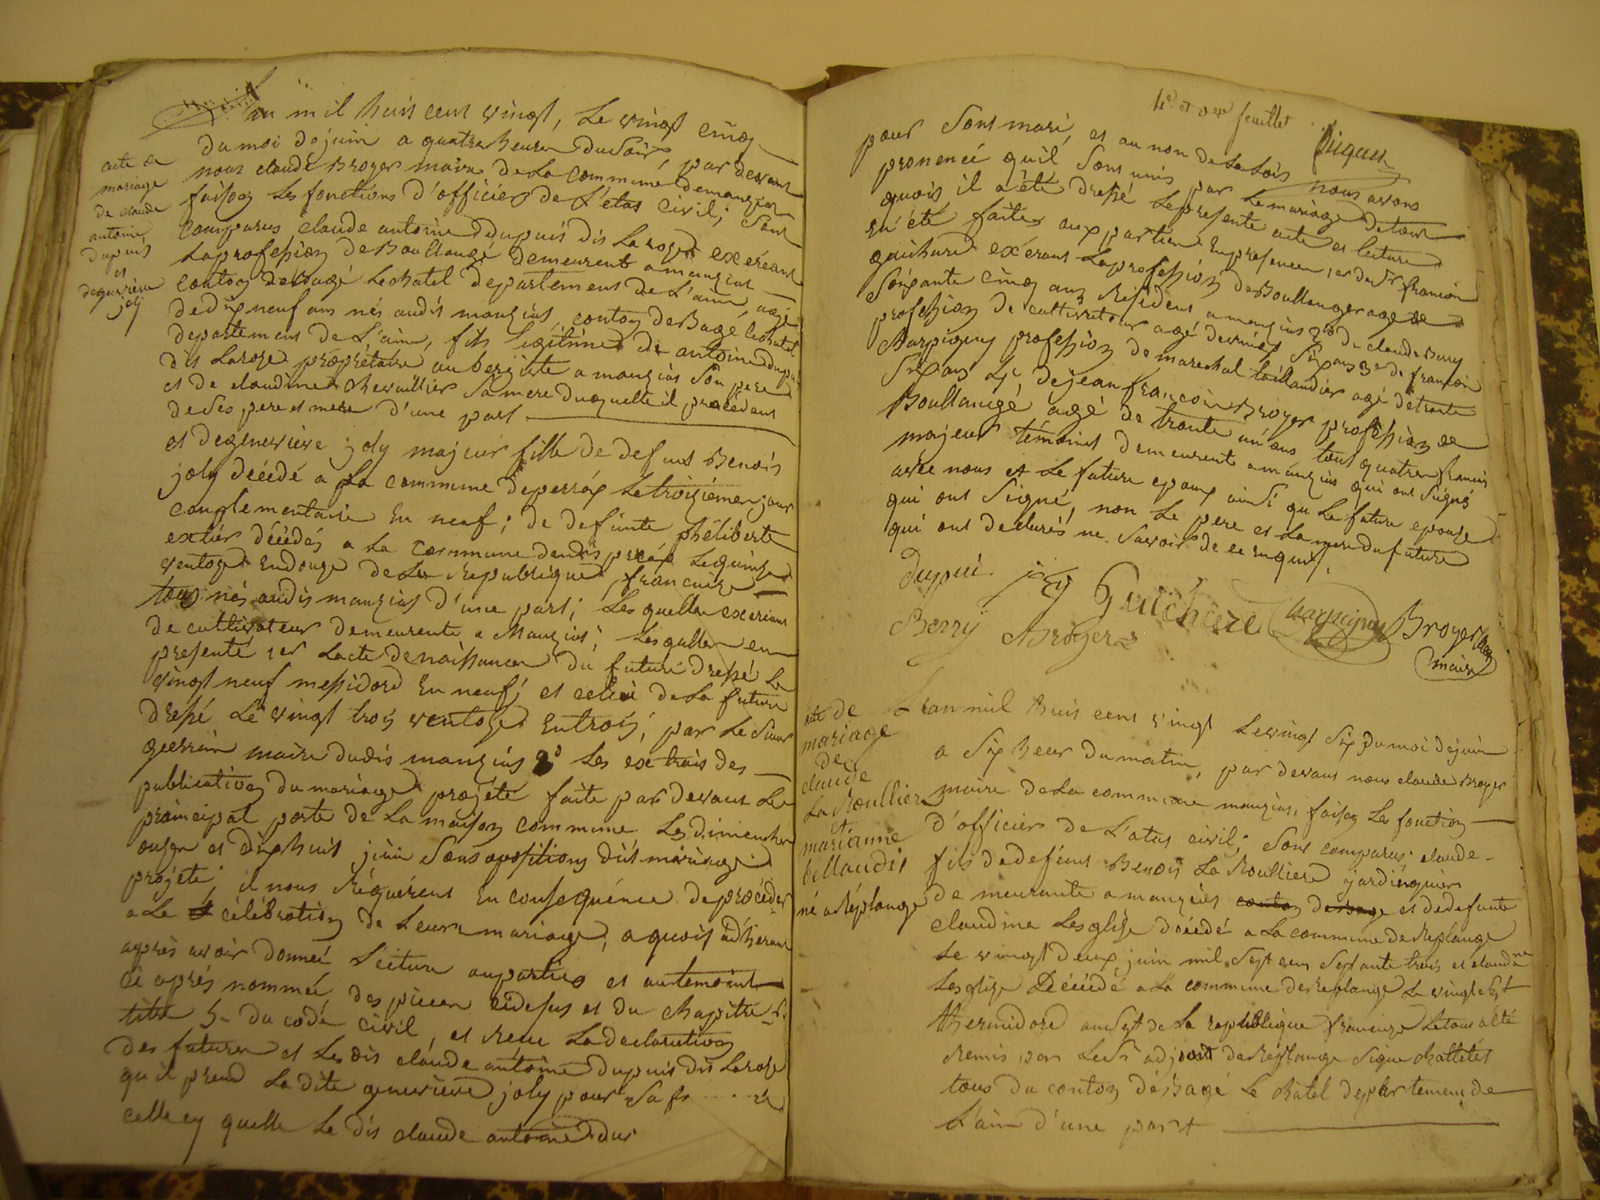 acte de
mariage
de claude
antoine
dupuis
et
degeneviève
joly
L'an mil huit cent vingt, Le vingt cinq
du moi dejuin a quatre heures du soir, par devant
nous claude Broyer maire de La commune demanziat
faisan Les fonctions d'officier de L'état civil; sont
comparus claude antoine dupuis dit Larose exercant
Laprofession de Boullangé demeurent a manziat
canton deBagé Lechatel departement de L'ain, agé
dedixneuf ans nés audit manziat, conton deBagé Lechatel
departement de L'ain, fils legitime de antoine dupuis
dit Larose propriétaire aubergiste a manziat son pere
et de claudine chevaillier sa mere duquelle il procèdant
de ses pere et mere d'une part
et degeneviève joly majeur fille de defunt Benoit
joly décédé a la commune deperréx Letroiziéme jour
complementaire En neuf; de defunte philiberte
décédés a La commune dudit peréx Lequinze
ventoze En douze de La Republique francaize
tous nés audit manziat d'une part; Les quelle exercant
de cultivateur demeurente a Manziat Lesquelles en
presenté 1er Lacte denaissances du future dressé Le
vingt neuf messidord En neuf; et celui de La future
dressé Le vingt trois ventoze En trois; par Le Sieur
guerrin maire dudit manziat 2° Les extrait des
publications du mariage projété faite par devant La
principal porte de La maison commune Les dimenches
onze et dix huit juin sans opositions dit mariage
projeté; il nous réquérent En consequénce deprocéder
a Le célébration de Leur mariage, a quois adherant
aprés avoir donneé Lecture auparties et autemoint
ci aprés nommeé, des pieces cidesus et du chapitre 6
titre 5e du codé civil, et recu La declaration
des futures et Ledit claude antoine dupuis dit Larose
qu'il prend La dite genevieve joly pour sa f
celle cy quelle Le dit claude antoine du
4e et der feuillet
pour sont mari, et au non de La Lois nous avons
prononcé quil sont unis par Le mariage detout
quois il a été dressé Lepresente acte et Lecture
En été faites auxparties En presence, 1er du Sr francois
guichard exercant Laprofession deBoullanger agé de
soixante cinq ans résident a manziat 2° de claude Berry
profession de cultivateur agé devingt six ans 3e de francois
Charpigny profession de marechal taillandier agé de trente
six ans 4e, dejean francois Broyer profession de
Boullangé agé de trante un ans tout quatre francais
majeur témoint demeurente a manziat qui ont signé
avec nous et Le future epoux ainsi qu La future epouse
qui ont signé, non Le pere et La mere du future
qui ont declarés ne savoir de ce Enquis
dupuis joly Guichard Charpigny Broyer
Berry Broyer maire
acte de
mariage
de
claude
La Roulliere
et
marianne
billaudit
né a Réplonge
L'an mil huit cent vingt Le vingt six du moi dejuin
a six heur du matin, par devant nous claude Broyer
maire de La commune manziat, faisan La fonction
d'officier de L'atat civil; sont comparus claude
fils dedefunt Benoit La Roulliere jardiegnier
de meurante a manziat et dedefunte
claudine Lesglise décédé a La commune de Replonge
Le vingt deux juin mil sept cent septante trois et claudine
Lesglise Décédé a La commune de Replonge Le vingt sept
thermidord an sept de La republique francaize Letout a été
remis par Le Sr adjoint deReplonge signe chattelet
tous du conton deBagé Le chatel departement de
L'ain d'une part